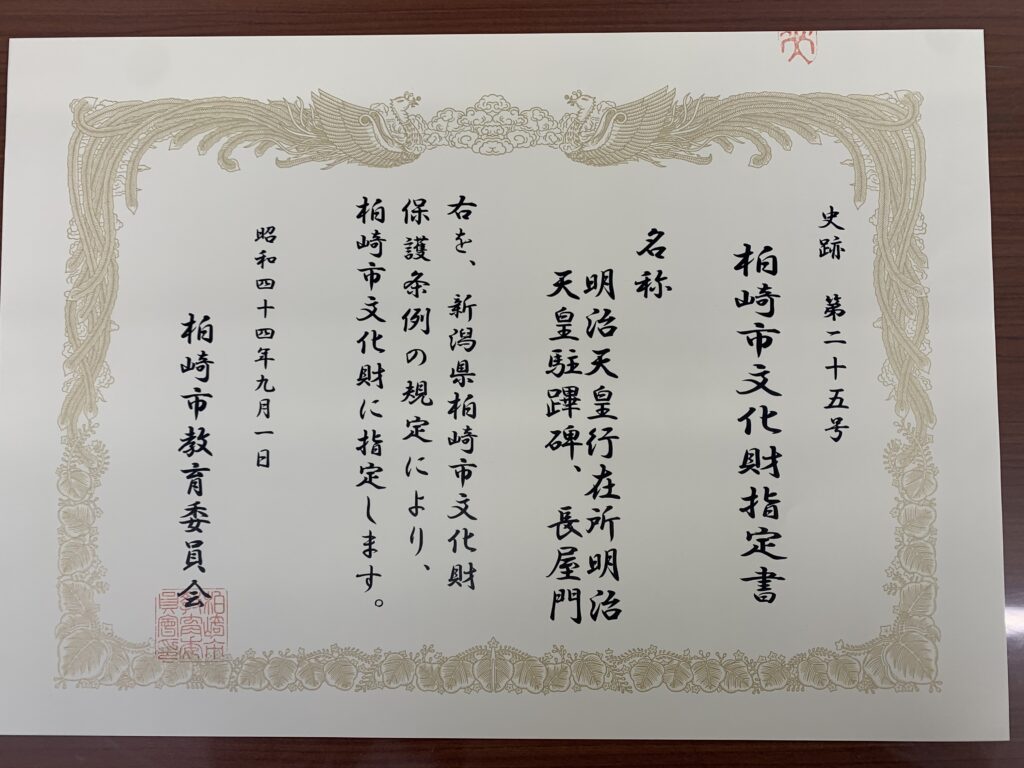 史跡 第二十五号
柏崎市文化財指定書
名称
明治天皇行在所明治
天皇駐蹕碑、長屋門
右を、新潟県柏崎市文化財
保護条例の規定により、
柏崎市文化財に指定します。
昭和四十四年九月一日
柏崎市教育委員会